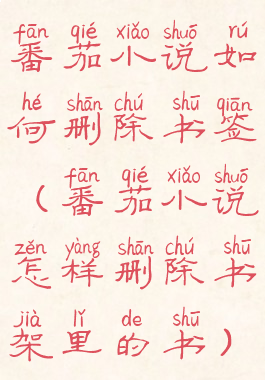 fān qié xiǎo shuō rú
番茄小说如
hé shān chú shū qiān
何删除书签
fān qié xiǎo shuō
（番茄小说
zěn yàng shān chú shū
怎样删除书
jià lǐ de shū
架里的书）